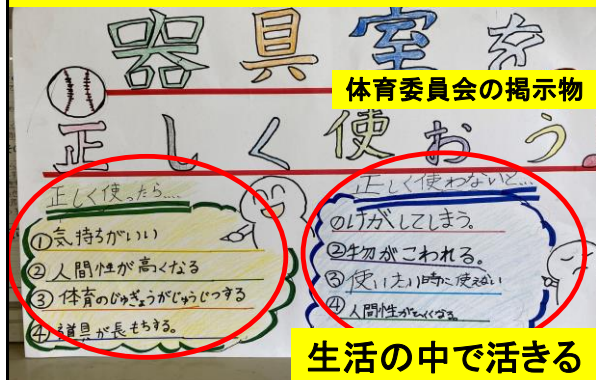 器具室を
体育委員会の掲示物
正しく使おう。
正しく使ったら....
①気持ちがいい
②人間性が高くなる
③体育のじゅぎょうがじゅうじつする
④道具が長もちする。
正しく使わないと...
①けがしてしまう。
②物がこわれる。
③使いたい時に使えない
④人間性がひくくなる。
生活の中で活きる